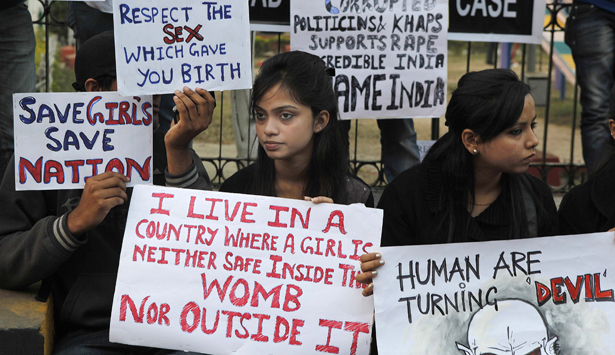 RESPECT THE
SEX
WHICH GAVE
YOU BIRTH
POLITICIANS & KHAPS
SUPPORTS RAPE
CREDIBLE INDIA
CASE
SAVE GIRLS
SAVE
NATION
I LIVE IN A
COUNTRY WHERE A GIRL IS
NEITHER SAFE INSIDE THE
WOMB
NOR OUTSIDE IT
HUMAN ARE
TURNING 'DEVIL'